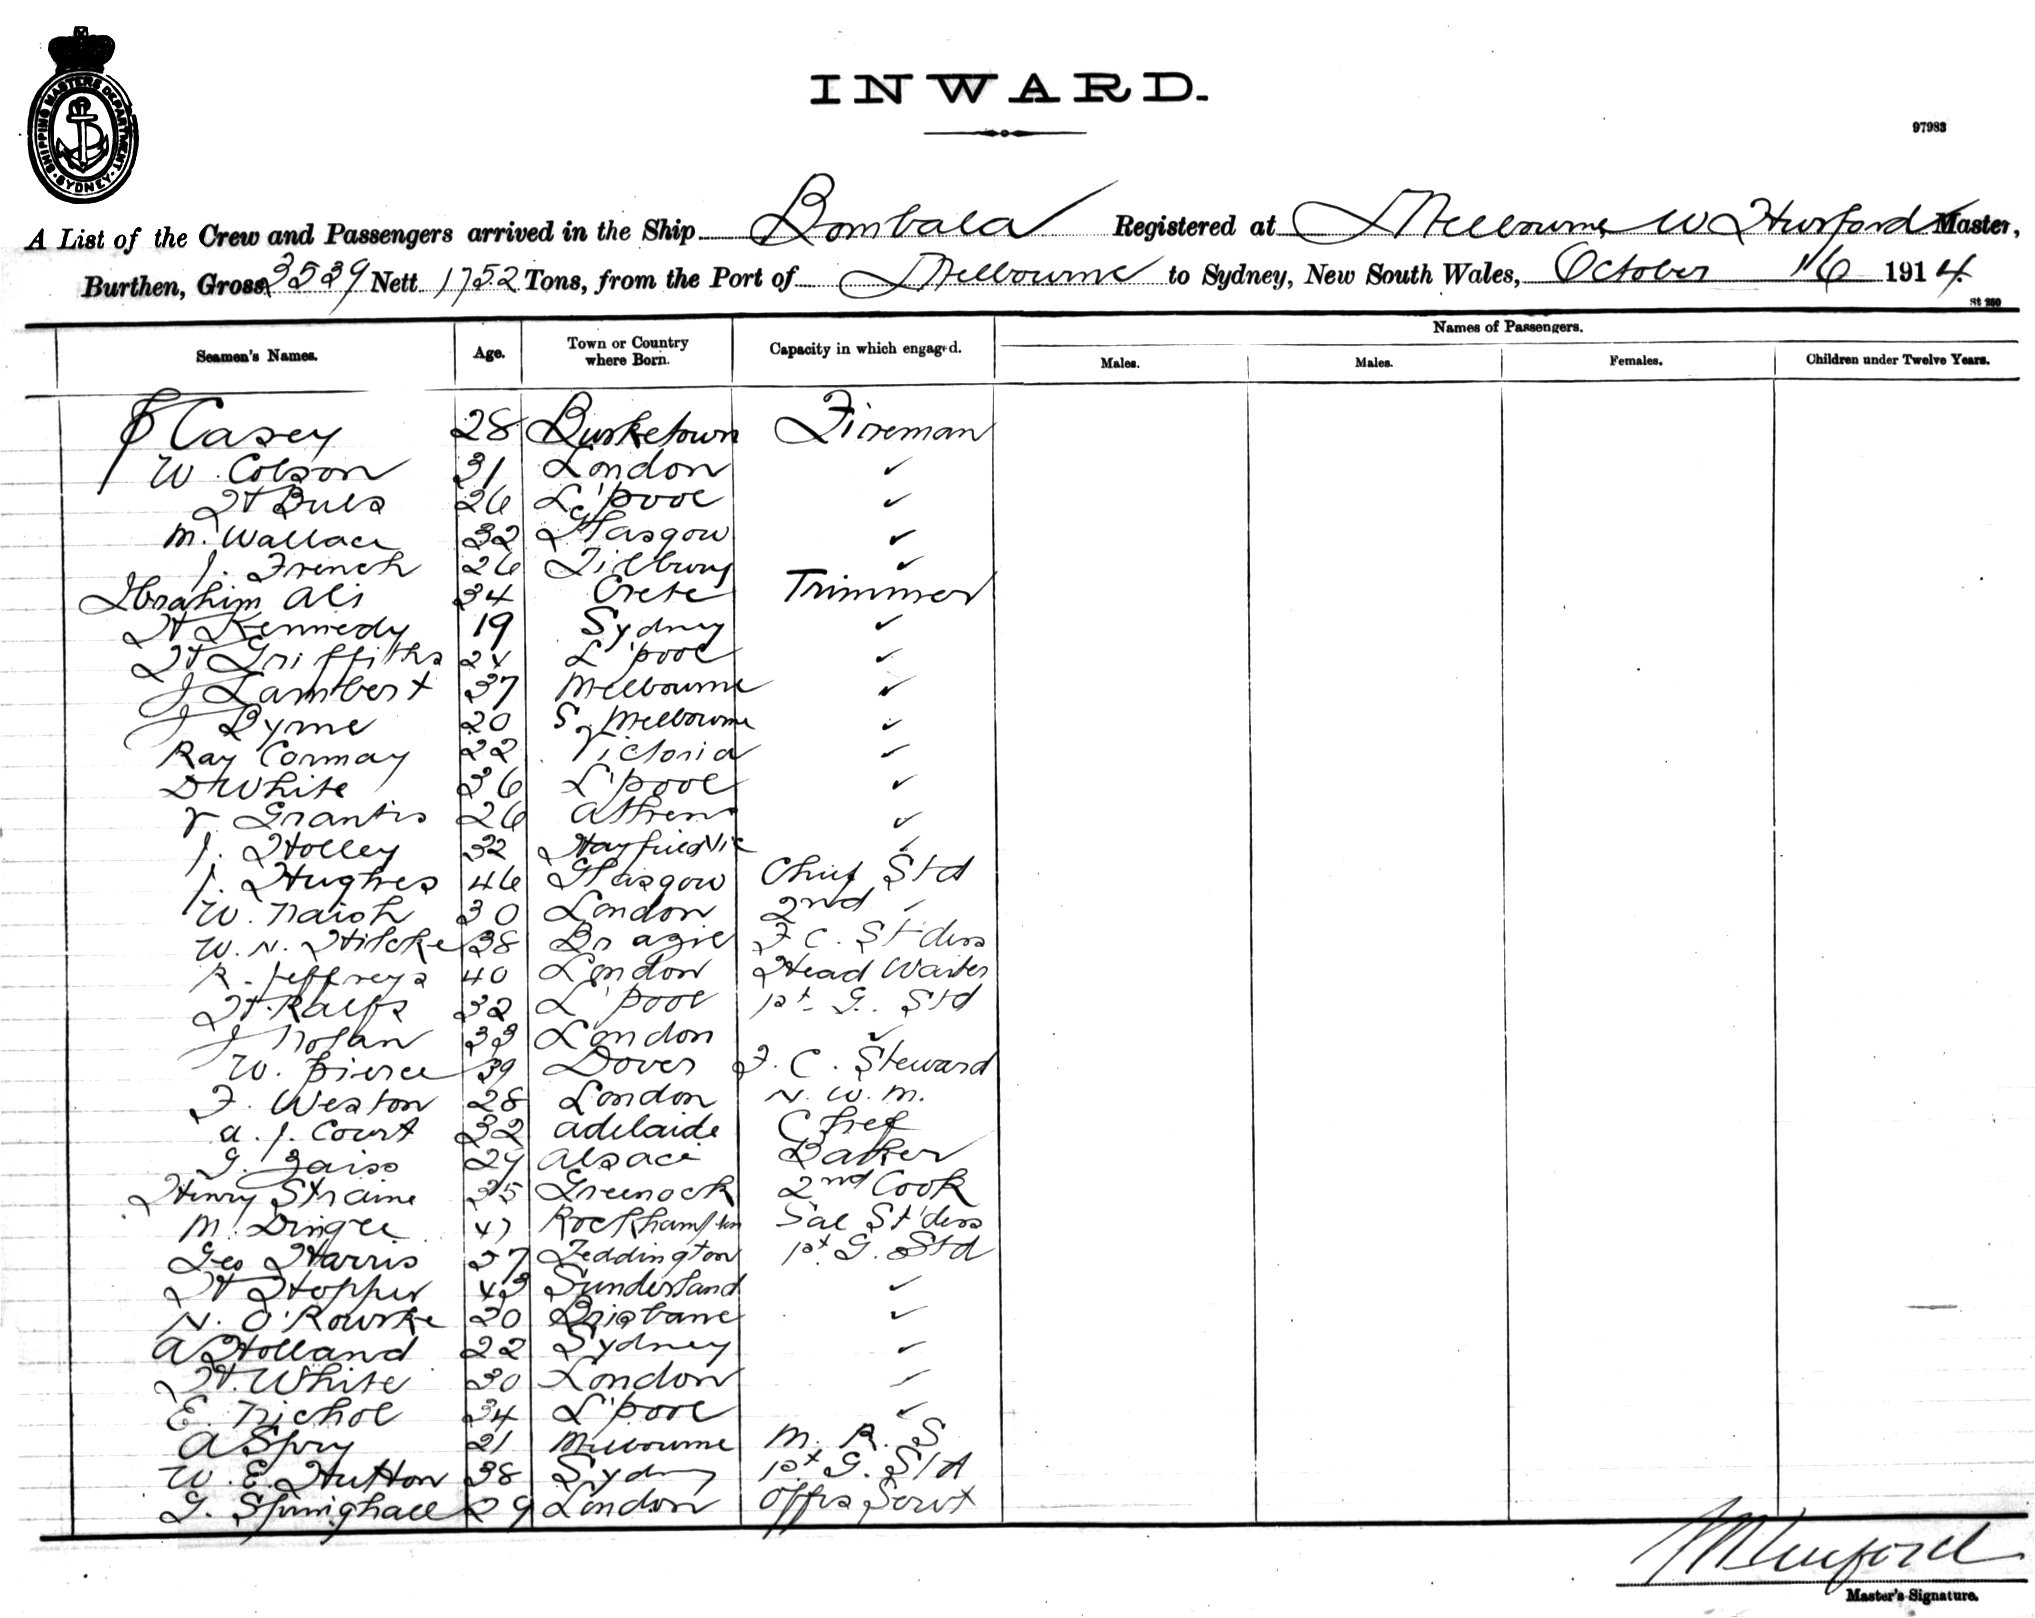 SHIPPING MASTERS DEPARTMENT · SYDNEY ·
INWARD.
97983
A List of the Crew and Passengers arrived in the Ship Bombala Registered at Melbourne W Hurford Master,
Burthen, Gross 3539 Nett 1752 Tons, from the Port of Melbourne to Sydney, New South Wales, October 16 1914.
St 250
Names of Passengers.
Seamen's Names. Age. Town or Country where Born. Capacity in which engaged. Males. Males. Females. Children under Twelve Years.
Casey 28 Burketown Fireman
W. Colson 31 London ✓
H 26 L'pool ✓
M. Wallace 32 Glasgow ✓
J. French 26 Tilbury ✓
Ibrahim Ali 34 Crete Trimmer
H Kennedy 19 Sydney ✓
H Griffiths 24 L'pool ✓
J Lambert 37 Melbourne ✓
J Byrne 20 S. Melbourne ✓
Ray Cormay 22 Victoria ✓
D White 36 L'pool ✓
Grantis 26 Athens ✓
J. Holley 32 Vic ✓
J. Hughes 46 Glasgow Chief Std
W. Naish 30 London 2nd ✓
W. N. Hilcke 38 Brazil F. C. St'dess
R. Jeffreys 40 London Head Waiter
H. Ralfs 32 L'pool 1st G. Std
J Nolan 33 London ✓
W. Pierce 39 Dover F. C. Steward
F. Weston 28 London N. W. M.
A. J. Court 32 Adelaide Chef
G. Zaiss 29 Alsace Baker
Henry Straine 35 Greenock 2nd Cook
M. Dingle 47 Rockhampton Sal St'dess
Geo Harris 37 Teddington 1st G. Std
H Hopper 43 Sunderland ✓
N. O'Rourke 20 Brisbane ✓
A Holland 22 Sydney ✓
H. White 30 London ✓
E. Nichol 34 L'pool ✓
A Spry 21 Melbourne M. R. S
W. E. Hutton 38 Sydney 1st G. Std
G. Springhall 29 London Offrs Servt
W Hurford
Master's Signature.